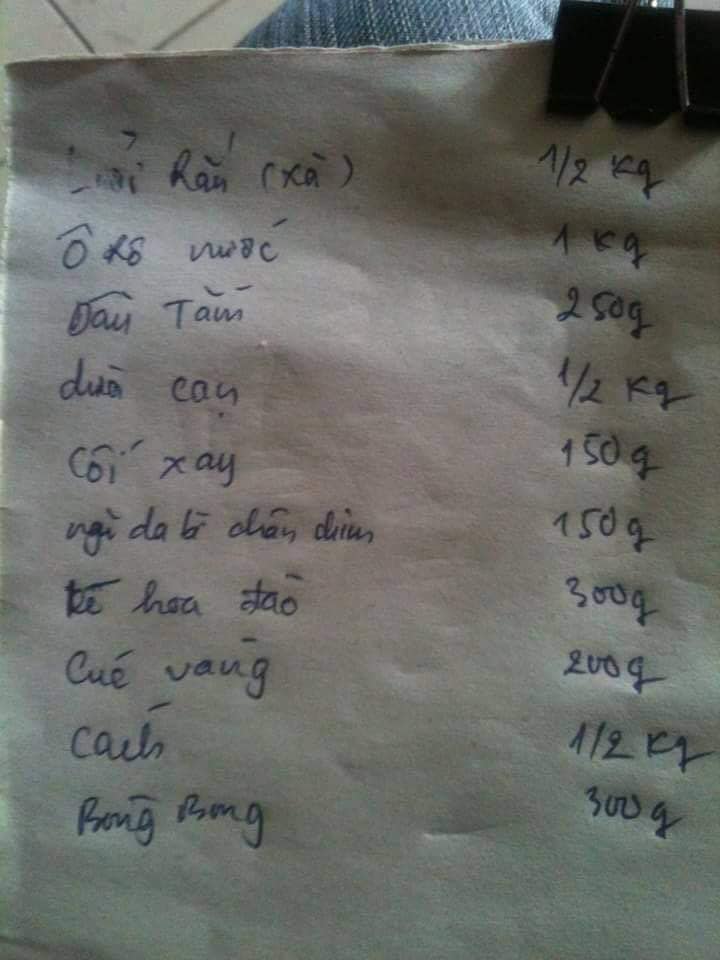 Lưỡi Rắn (xà) 1/2 kg
Ô Rô nước 1 kg
Dâu Tằm 250g
dừa cạn 1/2 kg
Cối xay 150g
ngũ da bì chân chim 150g
ké hoa đào 300g
Cúc vàng 200g
Cách 1/2 kg
Bòng Bong 300g